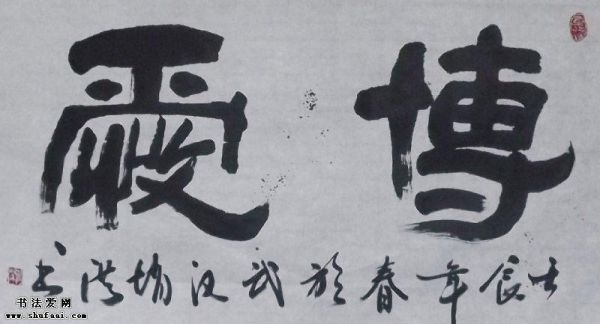 博愛
壬辰年春於武汉书
书法爱网
www.shufaai.com